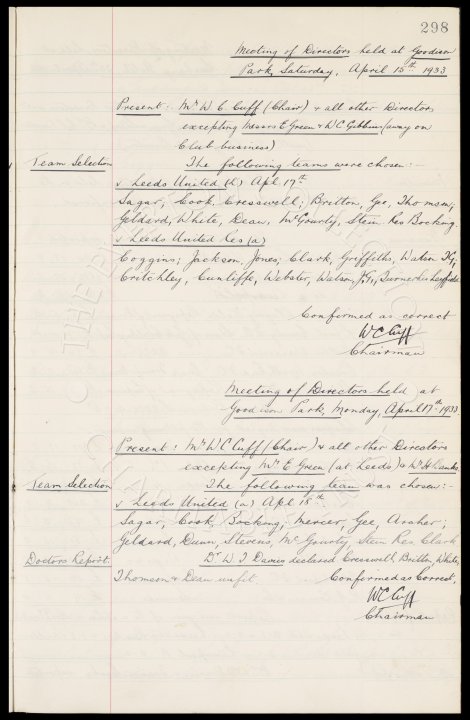 298
Meeting of Directors held at Goodison
Park, Saturday, April 15th 1933
Present: Mr W. C. Cuff (Chair) & all other Directors
excepting Messrs E Green & W C Gibbins (away on
Club business)
Team Selection
The following teams were chosen:-
v Leeds United (h) Apl 17th
Sagar, Cook, Cresswell; Britton, Gee, Thomson;
Geldard, White, Dean, McGourty, Stein Res Bocking
v Leeds United Res (a)
Coggins; Jackson, Jones; Clark, Griffiths, Watson T.G.,
Critchley, Cunliffe, Webster, Watson, J.G., Burnett Res
Confirmed as correct
W C Cuff
Chairman
Meeting of Directors held at
Goodison Park, Monday, April 17th 1933.
Present: Mr W C Cuff (Chair) & all other Directors
excepting Mr E Green (at Leeds) & Dr H Banks.
Team Selection
The following team was chosen:-
v Leeds United (a) Apl 18th
Sagar, Cook, Bocking; Mercer, Gee, Archer;
Geldard, Dunn, Stevens, McGourty, Stein Res. Clark
Doctors Report.
Dr W J Davies declared Cresswell, Britton, White,
Thomson & Dean unfit.
Confirmed as Correct,
W C Cuff
Chairman